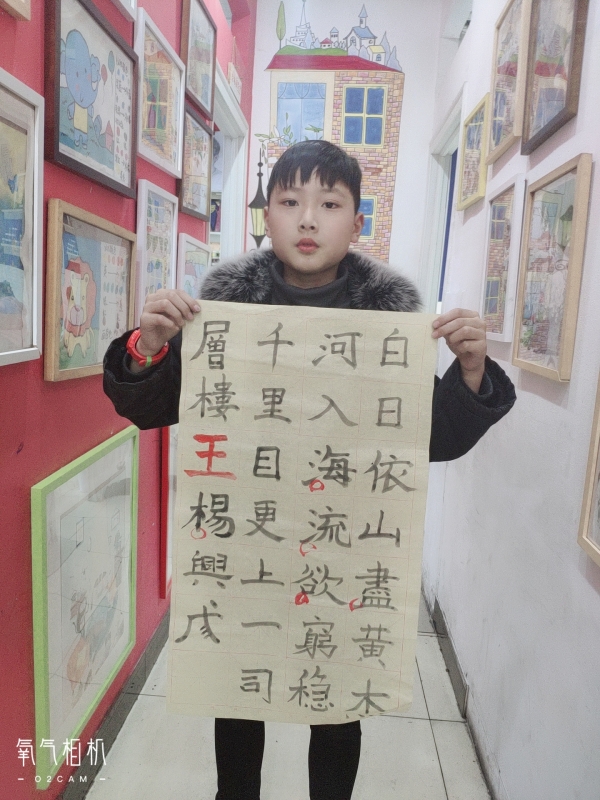 白日依山盡黄杰
河入海流欲窮稳
千里目更上一司
層樓王楊興成
氧气相机
O2CAM